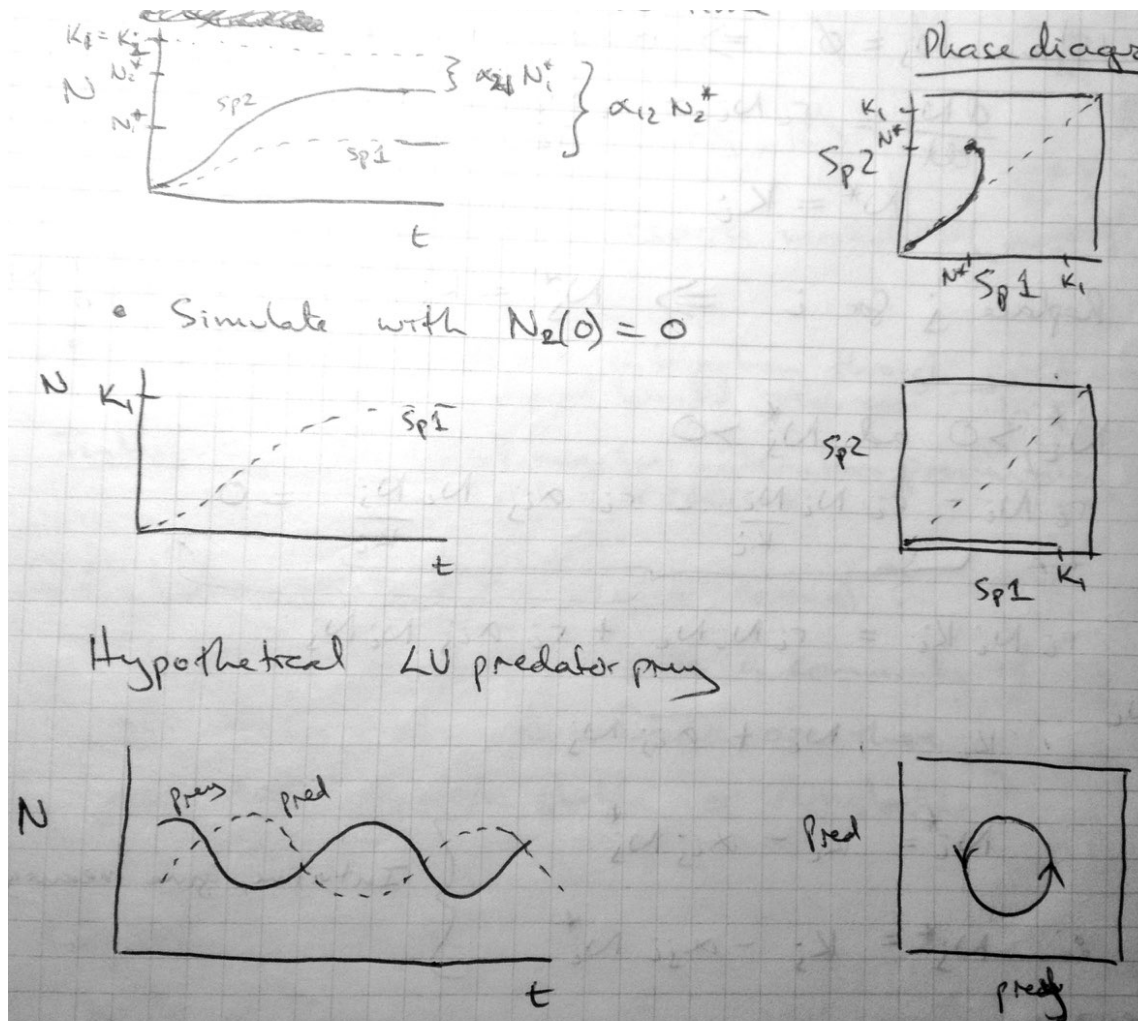 Phase diagr
K1 = K2
N2*
N
N1*
sp2
sp1
α21 N1*
α12 N2*
t
K1
N*
Sp2
N*
Sp1
K1
• Simulate with N2(0) = 0
N
K1
Sp1
t
Sp2
Sp1
K1
Hypothetical LV predator prey
N
prey
pred
t
Pred
prey